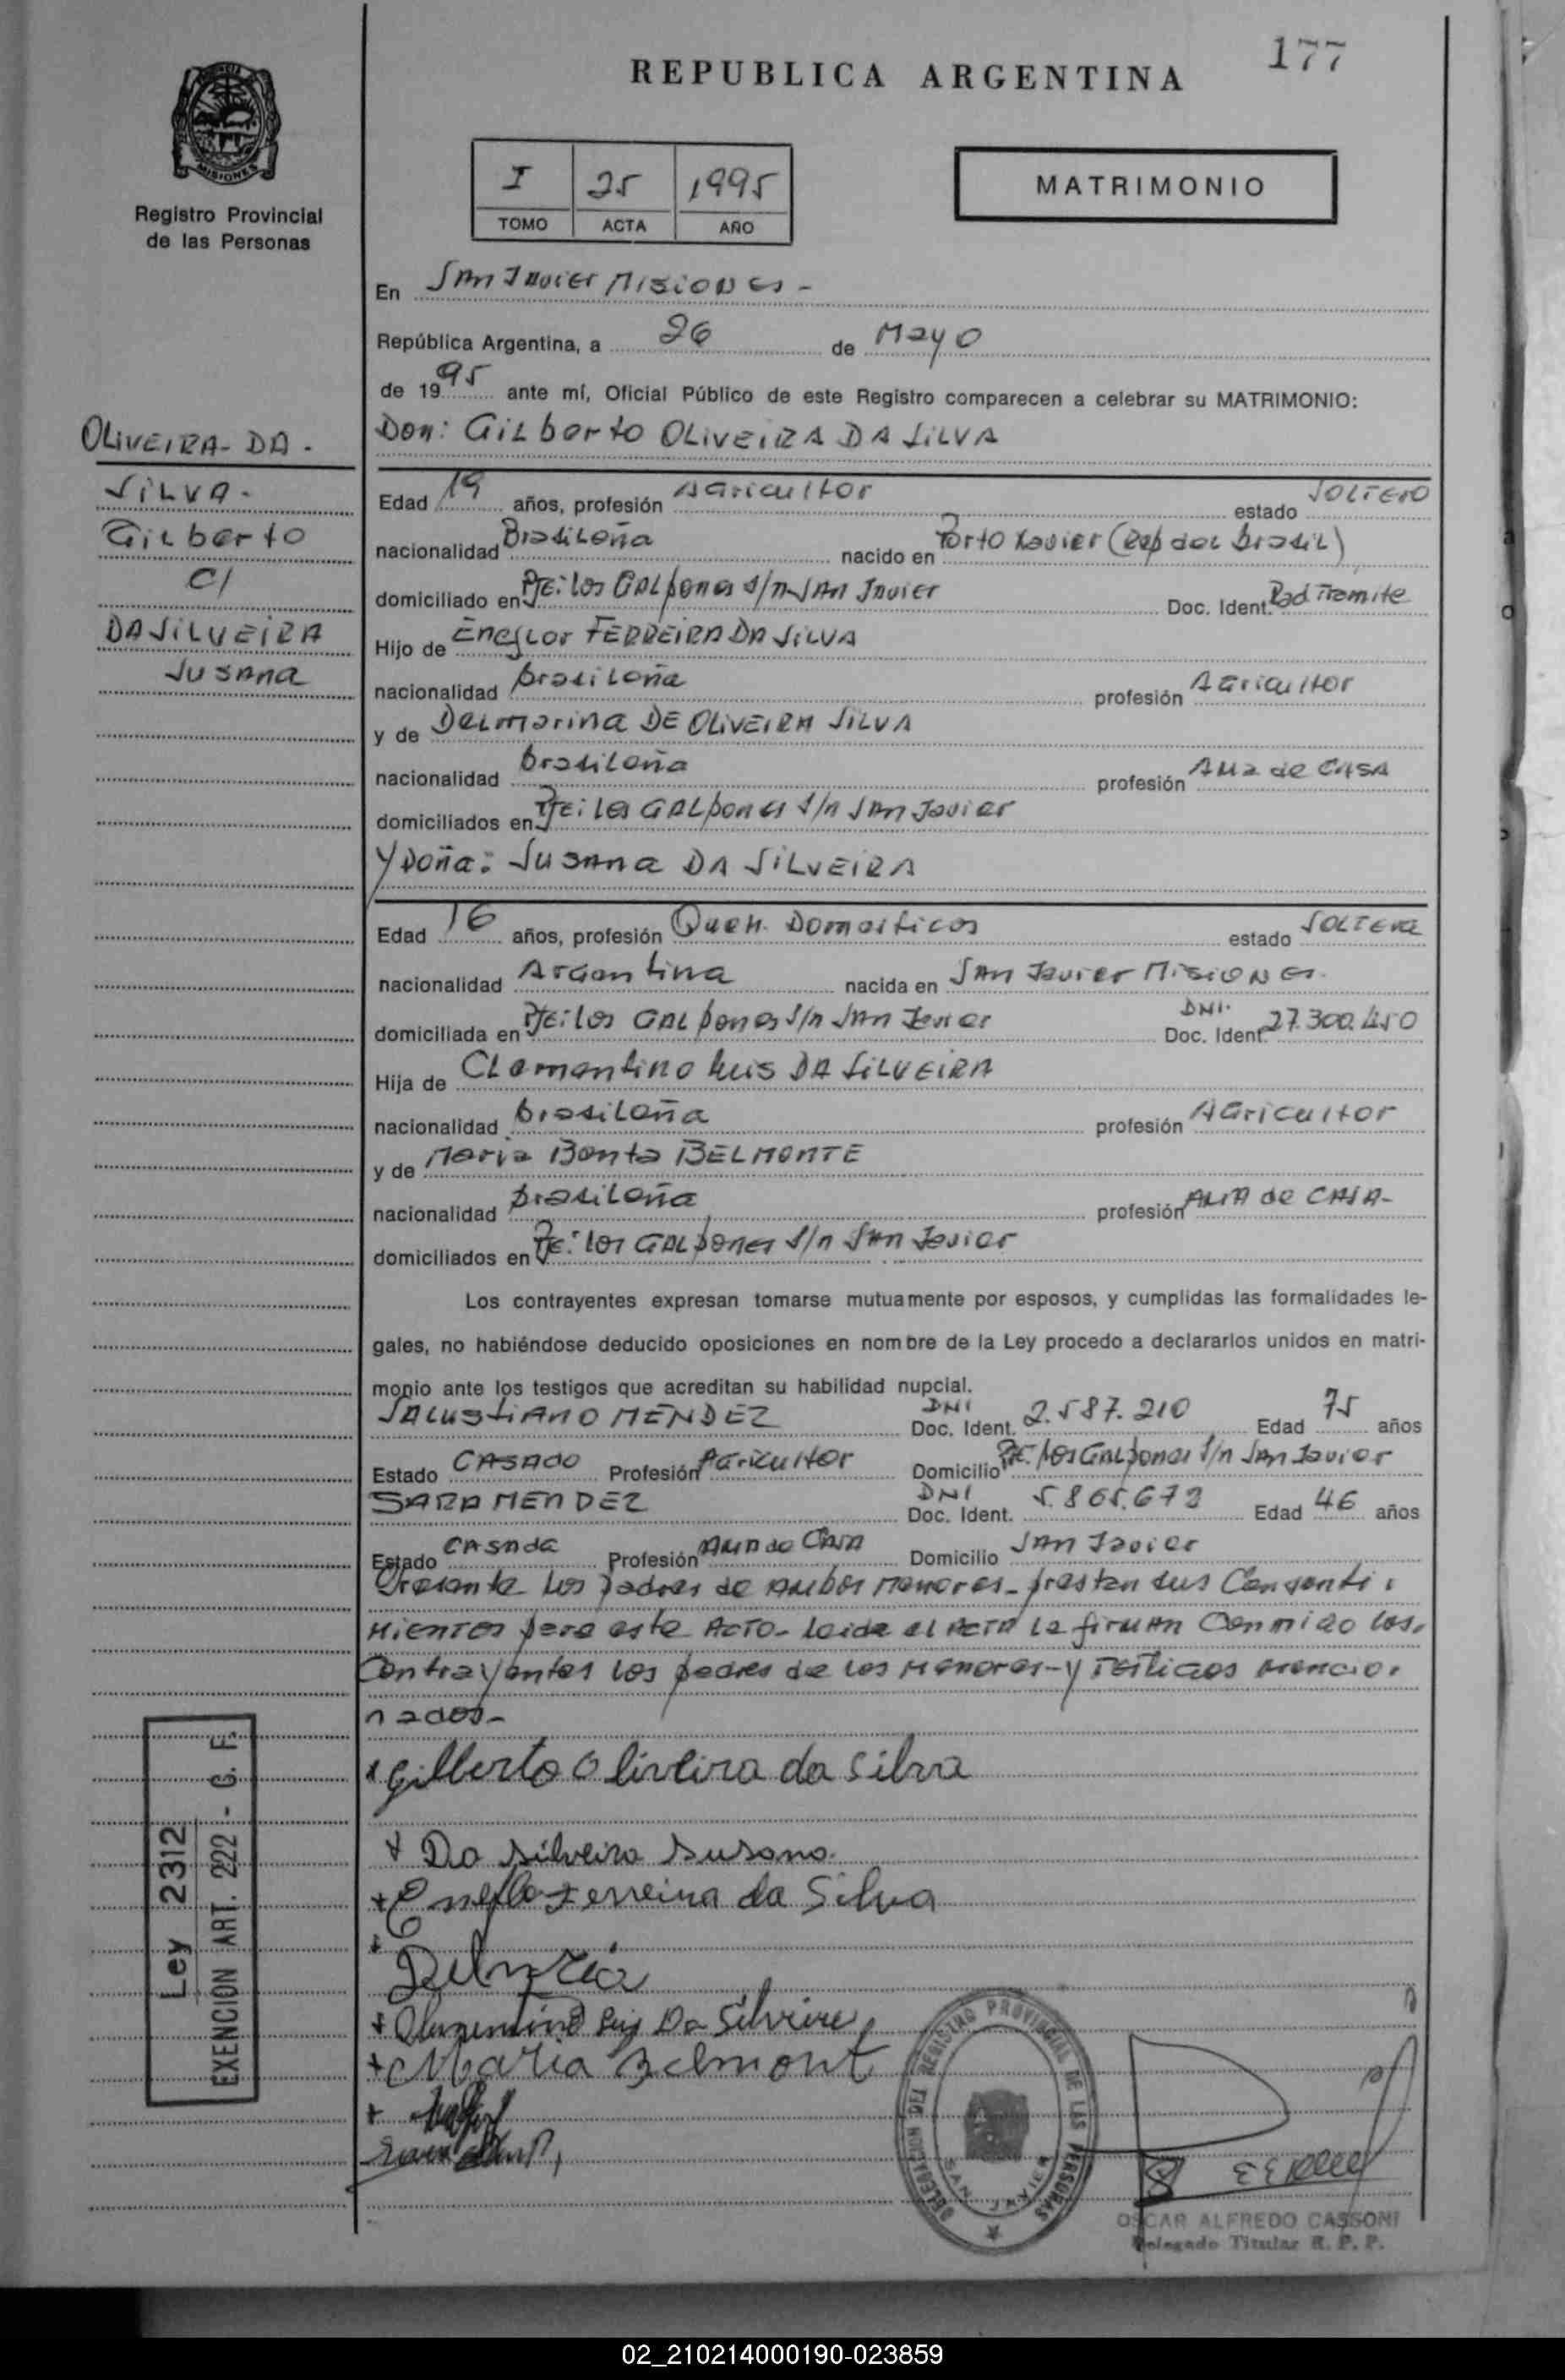 177
REPUBLICA ARGENTINA
MISIONES
Registro Provincial
de las Personas
I 25 1995
TOMO ACTA AÑO
MATRIMONIO
En San Javier Misiones -
República Argentina, a 26 de Mayo
de 1995 ante mí, Oficial Público de este Registro comparecen a celebrar su MATRIMONIO:
Don: Gilberto OLIVEIRA DA SILVA
OLIVEIRA- DA -
SILVA-
Gilberto
C/
DA SILVEIRA
Susana
Edad 19 años, profesión Agricultor estado SOLTERO
nacionalidad Brasileña nacido en Porto Xavier (Rep del Brasil)
domiciliado en Pje: los Galpones s/n San Javier Doc. Ident. Rad Tramite
Hijo de Eneflor FERREIRA DA SILVA
nacionalidad brasileña profesión Agricultor
y de Delmarina DE OLIVEIRA SILVA
nacionalidad brasileña profesión Ama de CASA
domiciliados en Pje: los Galpones s/n San Javier
Y Doña: Susana DA SILVEIRA
Edad 16 años, profesión Queh. Domesticos estado SOLTERA
nacionalidad Argentina nacida en San Javier Misiones.
domiciliada en Pje: los Galpones s/n San Javier Doc. Ident. DNI. 27.300.450
Hija de Clementino Luis DA SILVEIRA
nacionalidad brasileña profesión Agricultor
y de Maria Benta BELMONTE
nacionalidad brasileña profesión AMA de CASA-
domiciliados en Pje: los Galpones s/n San Javier
Los contrayentes expresan tomarse mutuamente por esposos, y cumplidas las formalidades le-
gales, no habiéndose deducido oposiciones en nombre de la Ley procedo a declararlos unidos en matri-
monio ante los testigos que acreditan su habilidad nupcial.
SALUSTIANO MENDEZ Doc. Ident. DNI 2.587.210 Edad 75 años
Estado CASADO Profesión Agricultor Domicilio Pje. los Galpones s/n San Javier
SARA MENDEZ Doc. Ident. DNI 5.865.673 Edad 46 años
Estado CASADA Profesión Ama de Casa Domicilio San Javier
Presente los padres de ambos menores- prestan sus Consenti-
mientos para este ACTO- leida el ACTA la firman Conmigo los-
Contrayentes los padres de los menores- y Testigos mencio-
nados-
x Gilberto Oliveira da silva
+ Da Silveira Susana.
+ Eneflor Ferreira da Silva
+ Delmaria
+ Clementino Luiz Da Silveira
+ Maria Belmont
+
Ley 2312
EXENCION ART. 222 - C. F.
DELEGACION DEL REGISTRO PROVINCIAL DE LAS PERSONAS
SAN JAVIER
OSCAR ALFREDO CASSONI
Delegado Titular R. P. P.
02_210214000190-023859